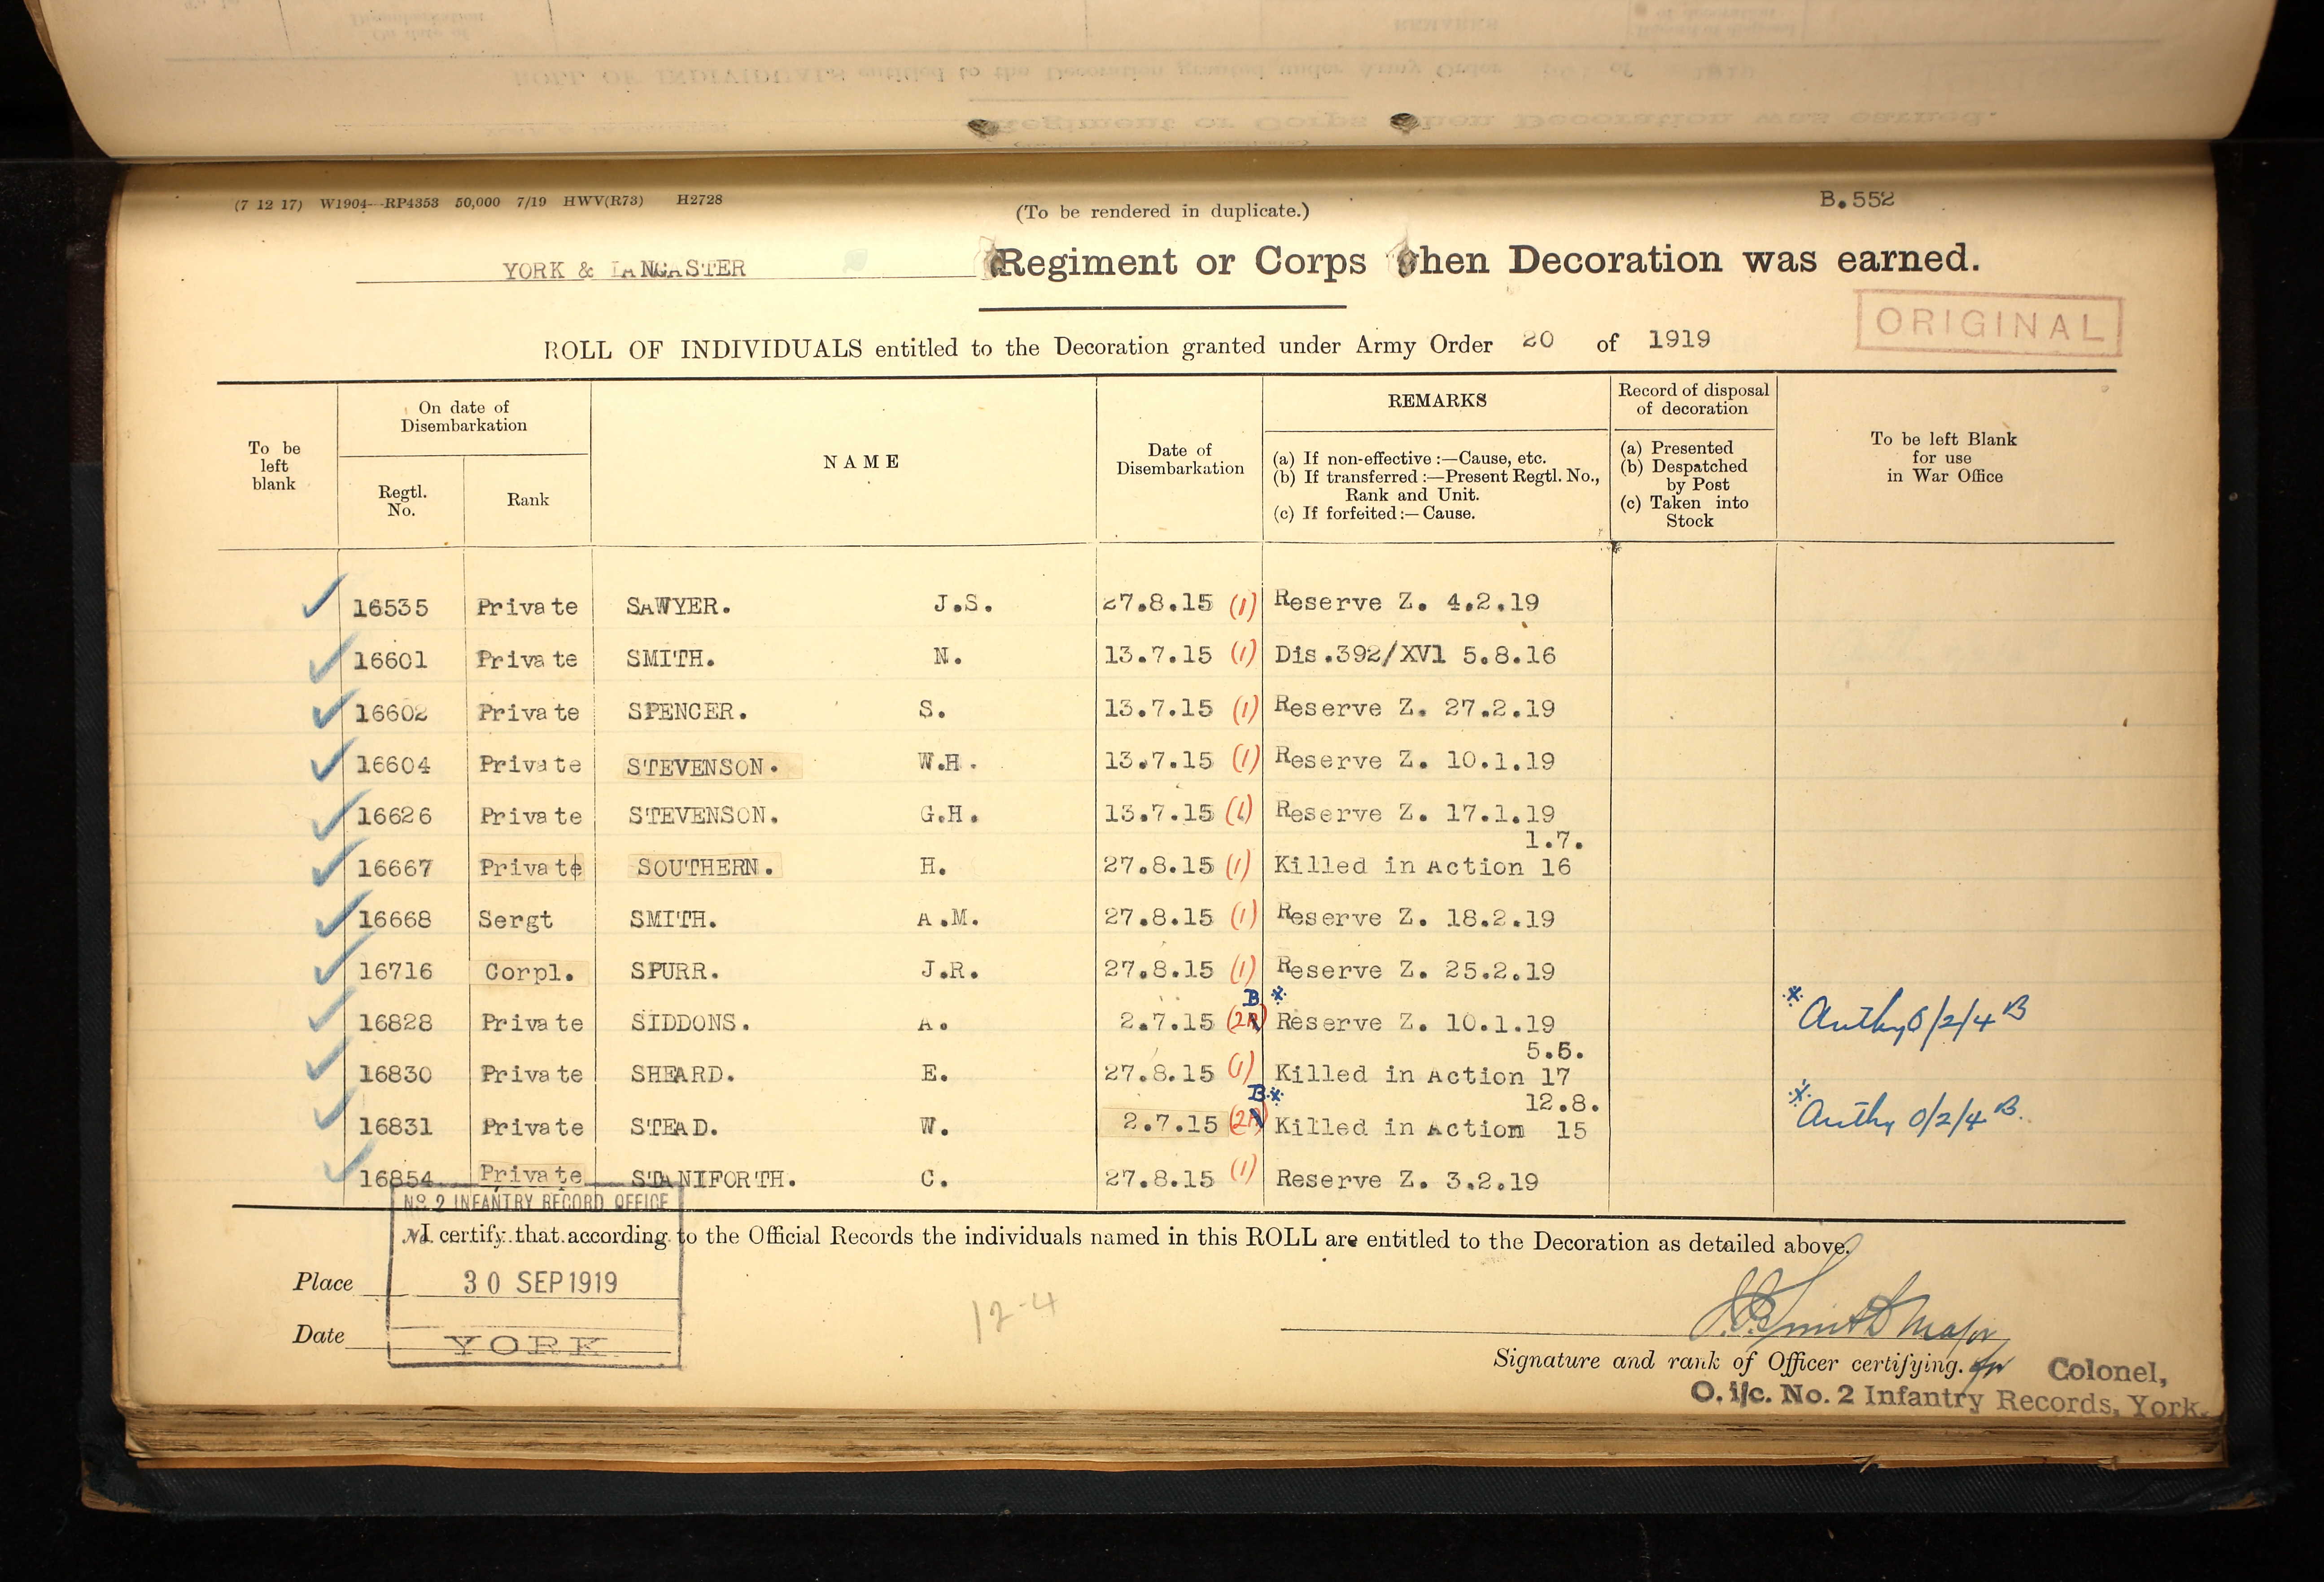 (7 12 17) W1904—RP4353 50,000 7/19 HWV(R73) H2728
(To be rendered in duplicate.)
B.552
YORK & LANCASTER Regiment or Corps when Decoration was earned.
ORIGINAL
ROLL OF INDIVIDUALS entitled to the Decoration granted under Army Order 20 of 1919
To be
left
blank
On date of
Disembarkation
Regtl.
No.
Rank
NAME
Date of
Disembarkation
REMARKS
(a) If non-effective :—Cause, etc.
(b) If transferred :—Present Regtl. No.,
Rank and Unit.
(c) If forfeited :—Cause.
Record of disposal
of decoration
(a) Presented
(b) Despatched
by Post
(c) Taken into
Stock
To be left Blank
for use
in War Office
16535 Private SAWYER. J.S. 27.8.15 (1) Reserve Z. 4.2.19
16601 Private SMITH. N. 13.7.15 (1) Dis.392/XV1 5.8.16
16602 Private SPENCER. S. 13.7.15 (1) Reserve Z. 27.2.19
16604 Private STEVENSON. W.H. 13.7.15 (1) Reserve Z. 10.1.19
16626 Private STEVENSON. G.H. 13.7.15 (1) Reserve Z. 17.1.19
1.7.
16667 Private SOUTHERN. H. 27.8.15 (1) Killed in Action 16
16668 Sergt SMITH. A.M. 27.8.15 (1) Reserve Z. 18.2.19
16716 Corpl. SPURR. J.R. 27.8.15 (1) Reserve Z. 25.2.19
B *
16828 Private SIDDONS. A. 2.7.15 (2A) Reserve Z. 10.1.19 * Authy 0/2/4 B
5.5.
16830 Private SHEARD. E. 27.8.15 (1) Killed in Action 17
B * 12.8.
16831 Private STEAD. W. 2.7.15 (2A) Killed in Action 15 * Authy 0/2/4 B.
16854 Private STANIFORTH. C. 27.8.15 (1) Reserve Z. 3.2.19
No. 2 INFANTRY RECORD OFFICE
No. I certify that according to the Official Records the individuals named in this ROLL are entitled to the Decoration as detailed above.
Place
30 SEP 1919
12-4
Date
YORK
Smith Major
Signature and rank of Officer certifying. for Colonel,
O. i/c. No. 2 Infantry Records, York.